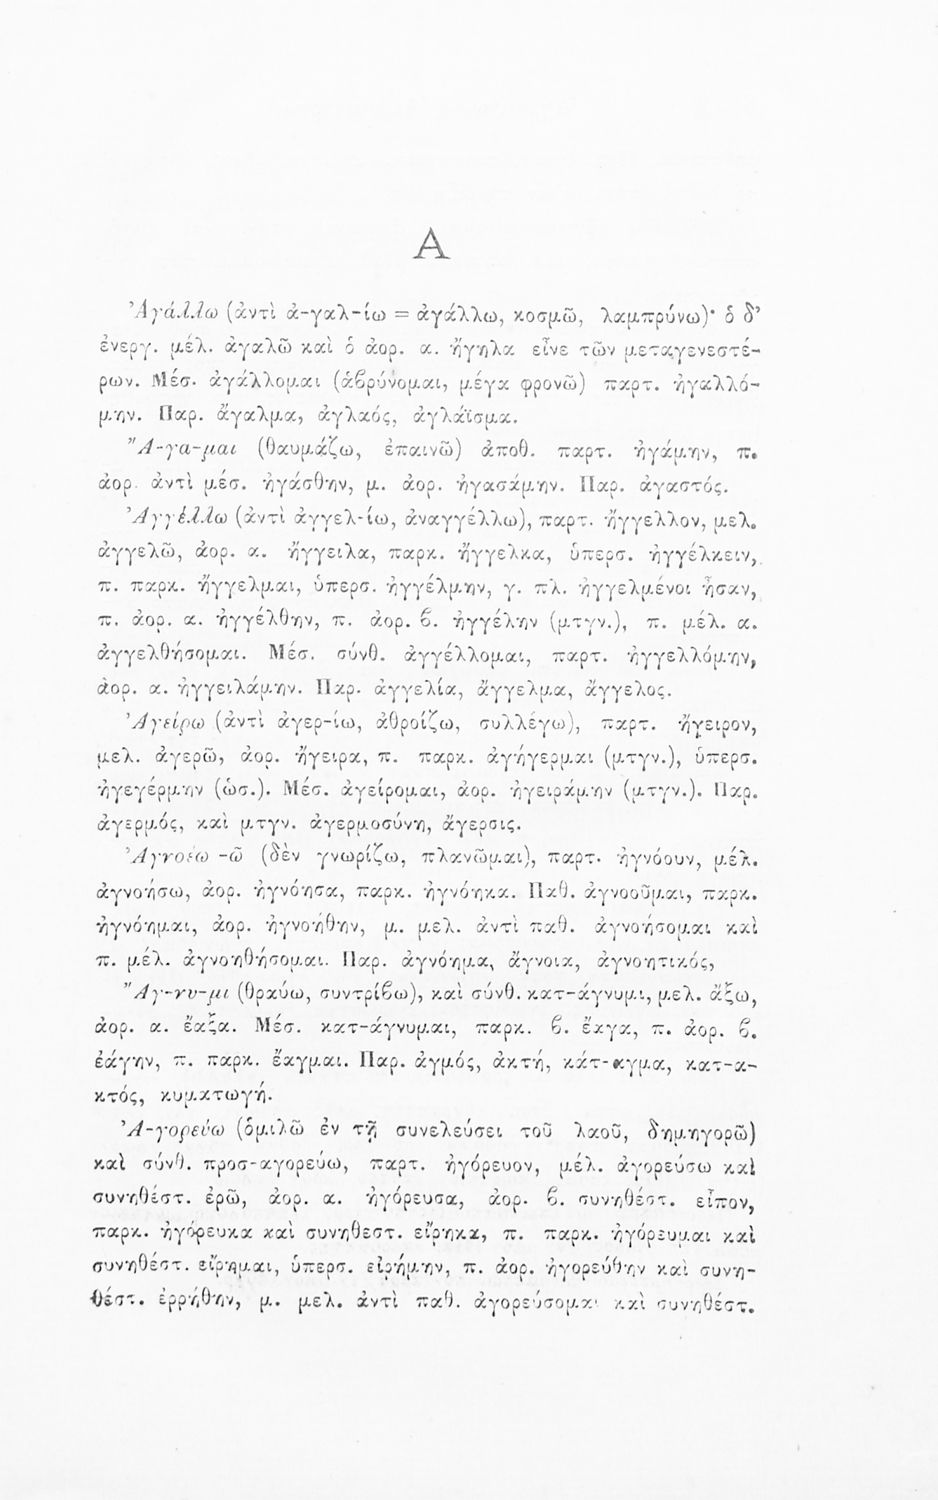 Α
Ἀγάλλω (ἀντὶ ἀ-γαλ-ίω = ἀγάλλω, κοσμῶ, λαμπρύνω)· ὁ δ’
ἐνεργ. μέλ. ἀγαλῶ καὶ ὁ ἀορ. α. ἤγηλα εἶνε τῶν μεταγενεστέ-
ρων. Μέσ. ἀγάλλομαι (ἁβρύνομαι, μέγα φρονῶ) παρτ. ἠγαλλό-
μην. Παρ. ἄγαλμα, ἀγλαός, ἀγλάϊσμα.
Ἄ-γα-μαι (θαυμάζω, ἐπαινῶ) ἀποθ. παρτ. ἠγάμην, π.
ἀορ. ἀντὶ μέσ. ἠγάσθην, μ. ἀορ. ἠγασάμην. Παρ. ἀγαστός.
Ἀγγέλλω (ἀντὶ ἀγγελ-ίω, ἀναγγέλλω), παρτ. ἤγγελλον, μελ.
ἀγγελῶ, ἀορ. α. ἤγγειλα, παρκ. ἤγγελκα, ὑπερσ. ἠγγέλκειν,
π. παρκ. ἤγγελμαι, ὑπερσ. ἠγγέλμην, γ. πλ. ἠγγελμένοι ἦσαν,
π. ἀορ. α. ἠγγέλθην, π. ἀορ. β. ἠγγέλην (μτγν.), π. μέλ. α.
ἀγγελθήσομαι. Μέσ. σύνθ. ἀγγέλλομαι, παρτ. ἠγγελλόμην,
ἀορ. α. ἠγγειλάμην. Παρ. ἀγγελία, ἄγγελμα, ἄγγελος.
Ἀγείρω (ἀντὶ ἀγερ-ίω, ἀθροίζω, συλλέγω), παρτ. ἤγειρον,
μελ. ἀγερῶ, ἀορ. ἤγειρα, π. παρκ. ἀγήγερμαι (μτγν.), ὑπερσ.
ἠγεγέρμην (ὡσ.). Μέσ. ἀγείρομαι, ἀορ. ἠγειράμην (μτγν.). Παρ.
ἀγερμός, καὶ μτγν. ἀγερμοσύνη, ἄγερσις.
Ἀγνοέω -ῶ (δὲν γνωρίζω, πλανῶμαι), παρτ. ἠγνόουν, μέλ.
ἀγνοήσω, ἀορ. ἠγνόησα, παρκ. ἠγνόηκα. Παθ. ἀγνοοῦμαι, παρκ.
ἠγνόημαι, ἀορ. ἠγνοήθην, μ. μελ. ἀντὶ παθ. ἀγνοήσομαι καὶ
π. μέλ. ἀγνοηθήσομαι. Παρ. ἀγνόημα, ἄγνοια, ἀγνοητικός,
Ἄγ-νυ-μι (θραύω, συντρίβω), καὶ σύνθ. κατ-άγνυμι, μελ. ἄξω,
ἀορ. α. ἔαξα. Μέσ. κατ-άγνυμαι, παρκ. β. ἔαγα, π. ἀορ. β.
ἐάγην, π. παρκ. ἔαγμαι. Παρ. ἀγμός, ἀκτή, κάτ-αγμα, κατ-α-
κτός, κυματωγή.
Ἀ-γορεύω (ὁμιλῶ ἐν τῇ συνελεύσει τοῦ λαοῦ, δημηγορῶ)
καὶ σύνθ. προσ-αγορεύω, παρτ. ἠγόρευον, μέλ. ἀγορεύσω καὶ
συνηθέστ. ἐρῶ, ἀορ. α. ἠγόρευσα, ἀορ. β. συνηθέστ. εἶπον,
παρκ. ἠγόρευκα καὶ συνηθεστ. εἴρηκα, π. παρκ. ἠγόρευμαι καὶ
συνηθέστ. εἴρημαι, ὑπερσ. εἰρήμην, π. ἀορ. ἠγορεύθην καὶ συνη-
θέστ. ἐρρήθην, μ. μελ. ἀντὶ παθ. ἀγορεύσομαι καὶ συνηθέστ.